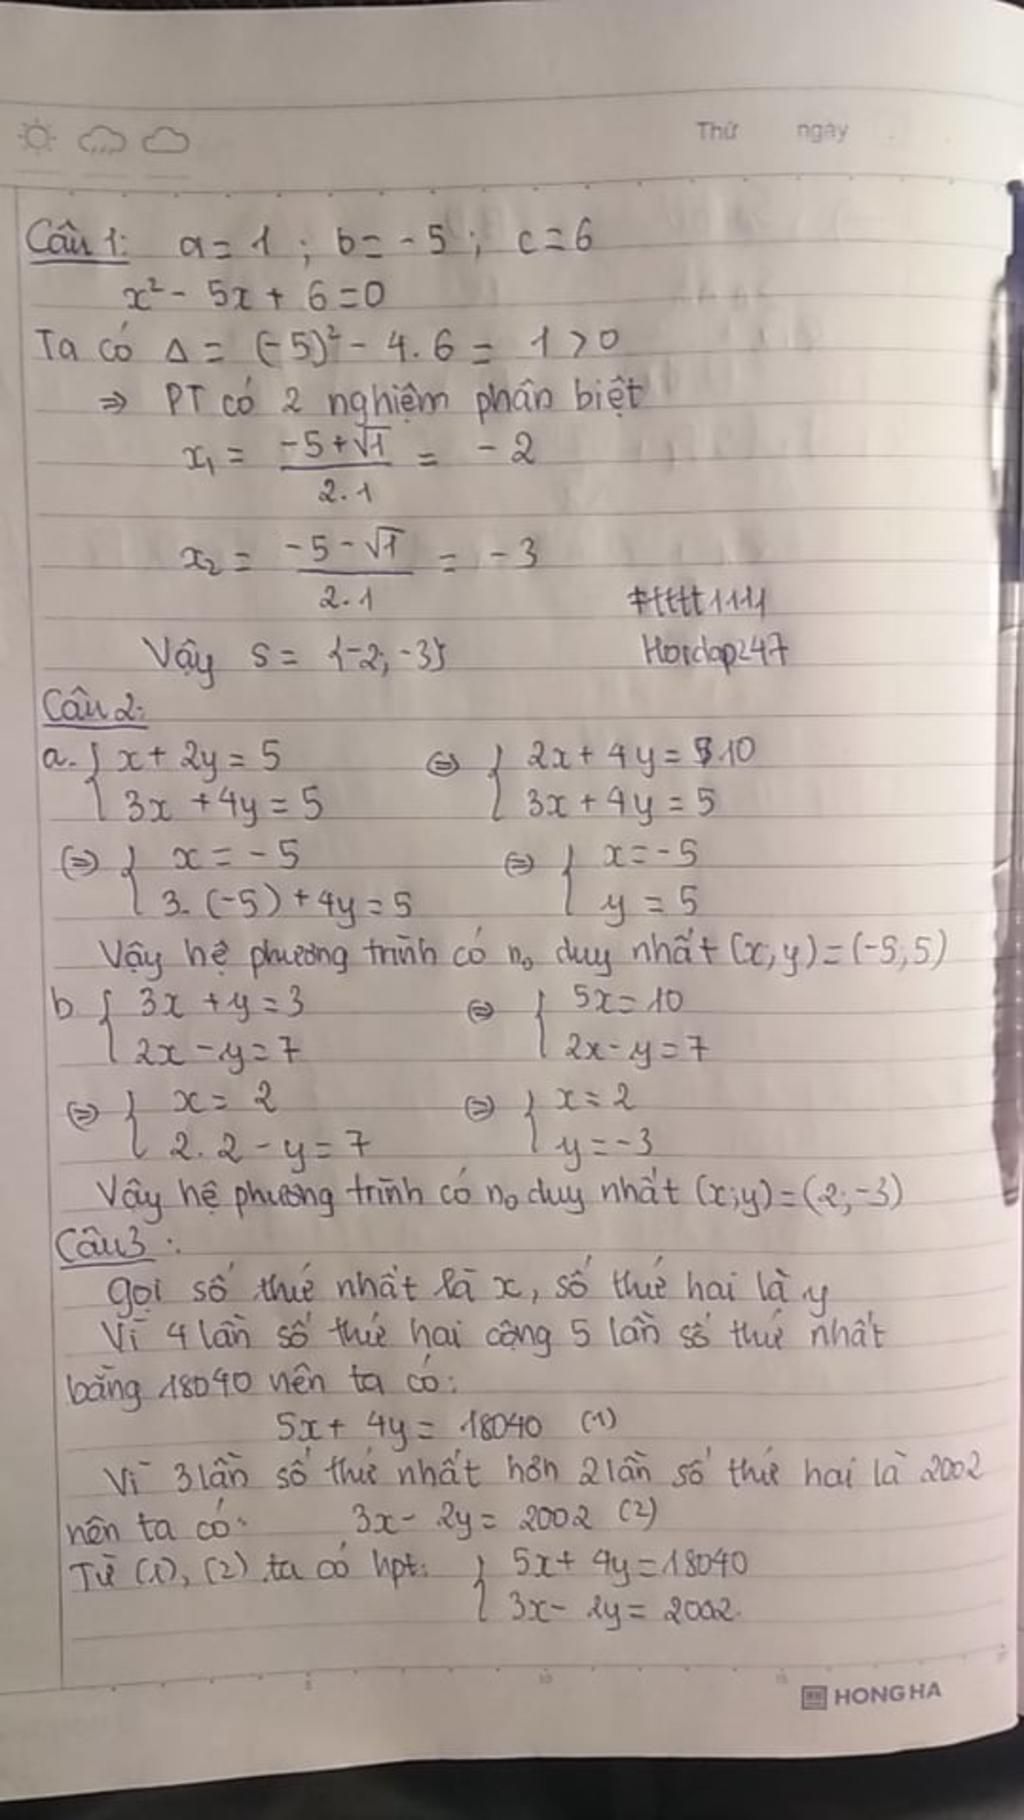 Thứ ngày
Câu 1: a = 1 ; b = -5 ; c = 6
x² - 5x + 6 = 0
Ta có Δ = (-5)² - 4.6 = 1 > 0
⇒ PT có 2 nghiệm phân biệt
x₁ = (-5 + √1)/(2.1) = -2
x₂ = (-5 - √1)/(2.1) = -3
#tttt1111
Vậy S = {-2; -3}
Hoidap247
Câu 2:
a. { x + 2y = 5 ⇔ { 2x + 4y = 10
3x + 4y = 5 3x + 4y = 5
⇔ { x = -5 ⇔ { x = -5
3. (-5) + 4y = 5 y = 5
Vậy hệ phương trình có n₀ duy nhất (x; y) = (-5; 5)
b { 3x + y = 3 ⇔ { 5x = 10
2x - y = 7 2x - y = 7
⇔ { x = 2 ⇔ { x = 2
2. 2 - y = 7 y = -3
Vậy hệ phương trình có n₀ duy nhất (x; y) = (2; -3)
Câu 3 :
Gọi số thứ nhất là x, số thứ hai là y
Vì 4 lần số thứ hai cộng 5 lần số thứ nhất
bằng 18040 nên ta có:
5x + 4y = 18040 (1)
Vì 3 lần số thứ nhất hơn 2 lần số thứ hai là 2002
nên ta có: 3x - 2y = 2002 (2)
Từ (1), (2) ta có hpt: { 5x + 4y = 18040
3x - 2y = 2002.
HONG HA